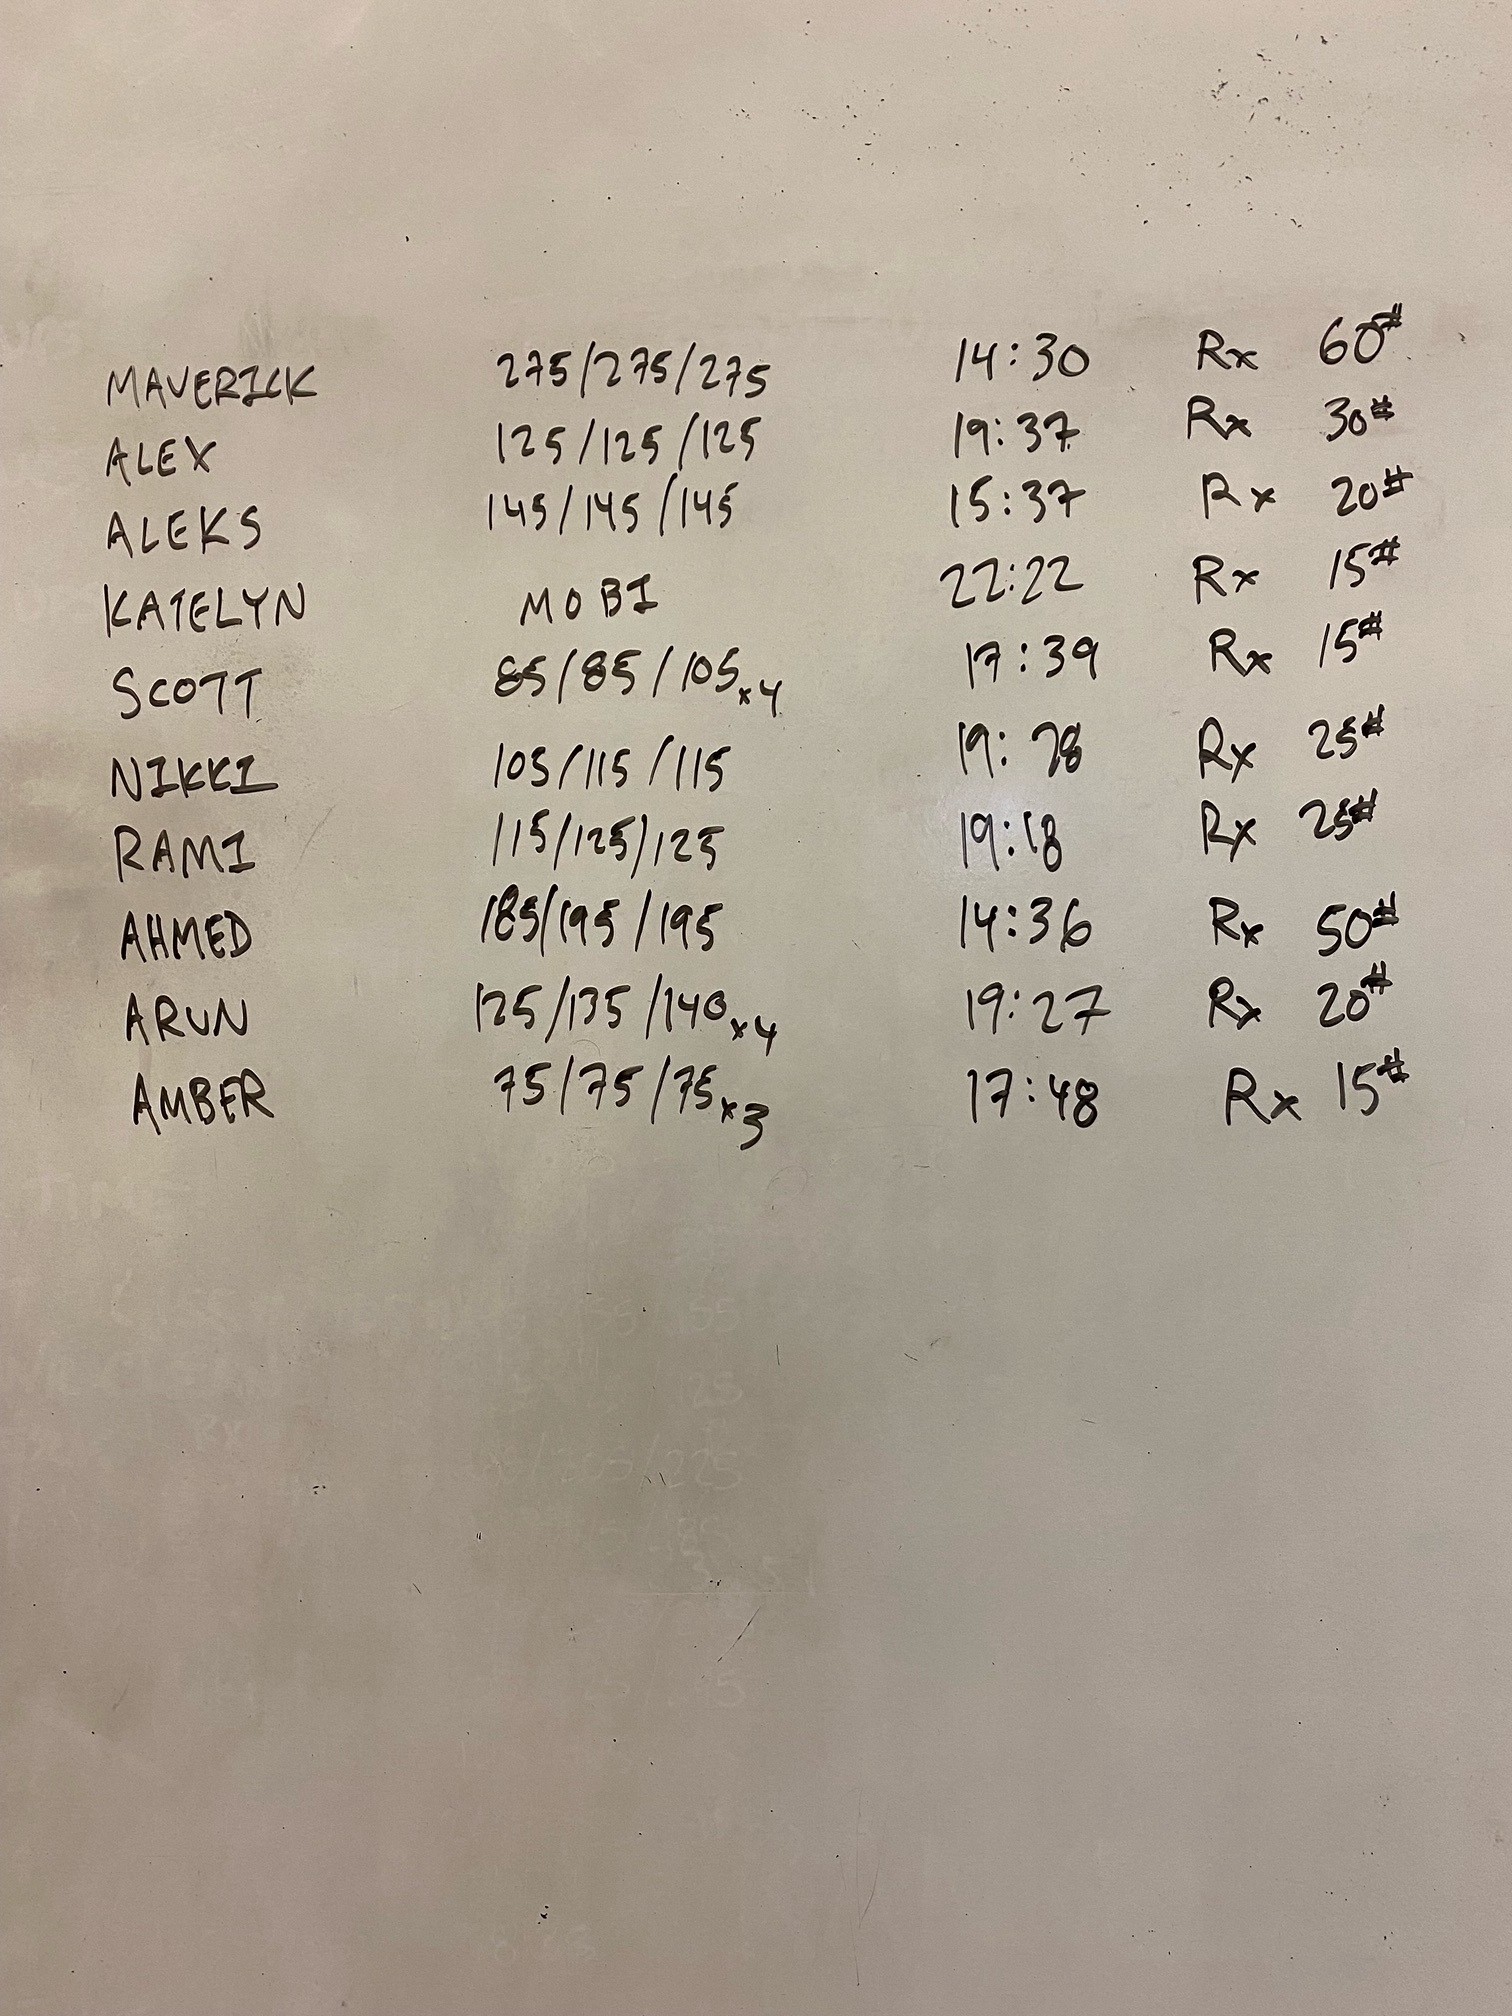 MAVERICK 275/275/275 14:30 Rx 60#
ALEX 125/125/125 19:37 Rx 30#
ALEKS 145/145/145 15:37 Rx 20#
KATELYN MOBI 22:22 Rx 15#
SCOTT 85/85/105x4 17:39 Rx 15#
NIKKI 105/115/115 Rx 25#
RAMI 115/125/125 19:18 Rx 25#
AHMED 185/195/195 14:36 Rx 50#
ARUN 125/135/140x4 19:27 Rx 20#
AMBER 75/75/75x3 17:48 Rx 15#